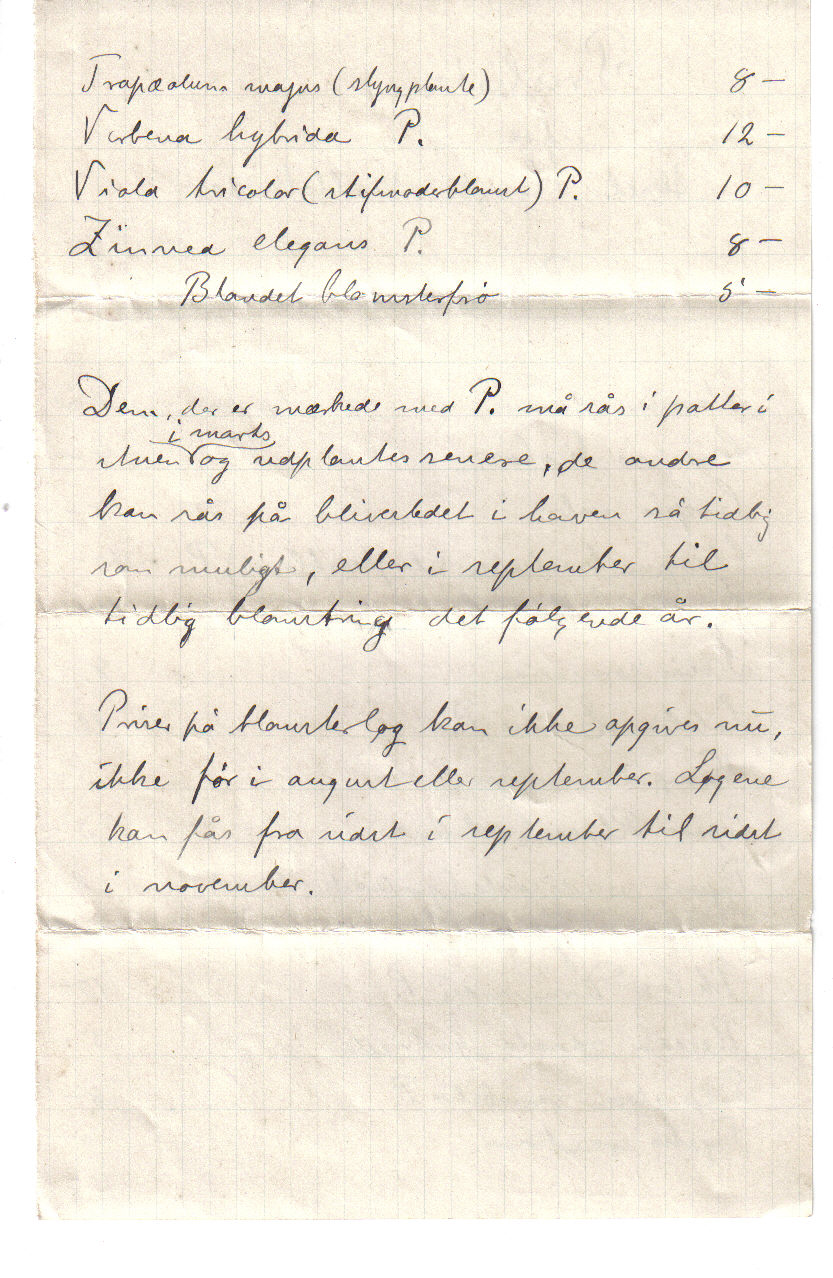 Tropæolum majus (slyngplante) 8 —
Verbena hybrida P. 12 —
Viola tricolor (stifmoderblomst) P. 10 —
Zinnea elegans P. 8 —
Blandet blomsterfrö 5 —
Dem, der er mærkede med P. må sås i potter i
i marts
stuen og udplantes senere, de andre
kan sås på blivestedet i haven så tidlig
som muligt, eller i september til
tidlig blomstring det følgende år.
Priser på blomsterløg kan ikke opgives nu,
ikke før i august eller september. Løgene
kan fås fra sidst i september til sidst
i november.